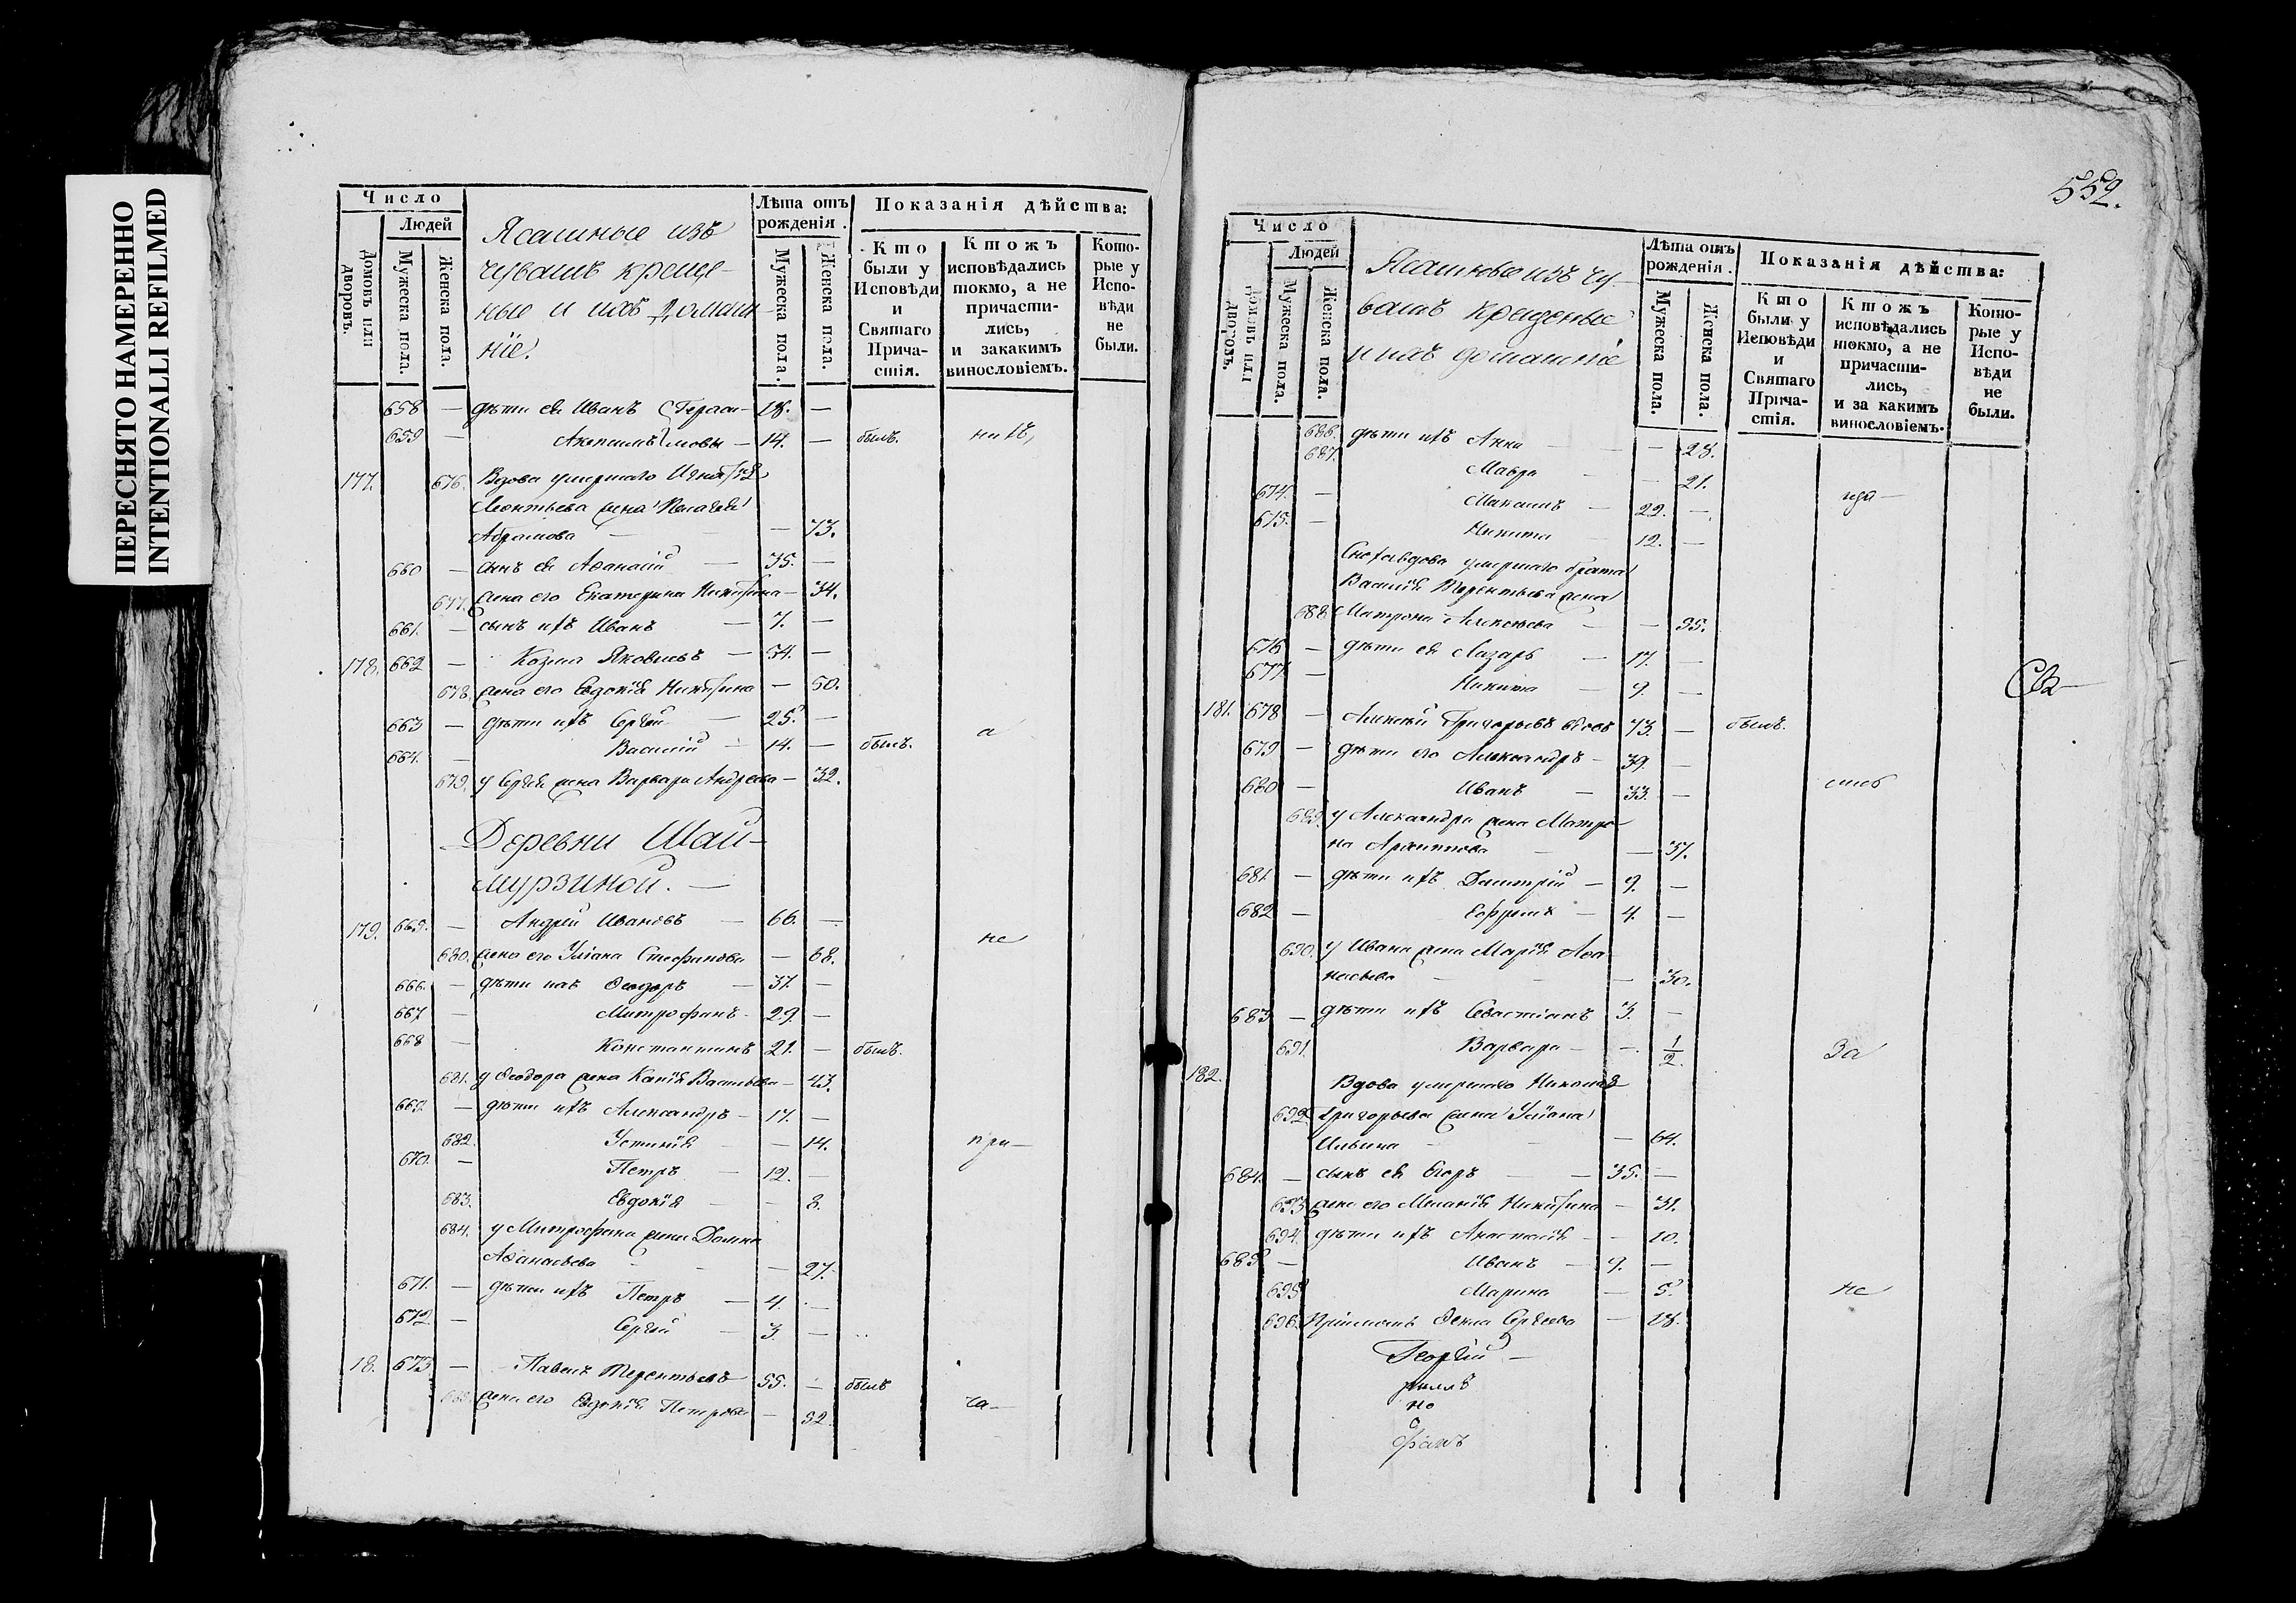 ПЕРЕСНЯТО НАМЕРЕННО
INTENTIONALLI REFILMED
Число
Людей
Домовъ или дворовъ.
Мужеска пола.
Женска пола.
Ясашные изъ
чувашъ креще-
ные и ихъ домаш-
ніе.
Лѣта отъ рожденія.
Мужеска пола.
Женска пола.
Показанія дѣйства:
Кто были у Исповѣди и Святаго Прича-стія.
Ктожъ исповѣдались токмо, а не причасти-лись, и закакимъ винословіемъ.
Кото-рые у Испо-вѣди не были.
658 — дѣти ея Иванъ Гераси- 18. —
659 — мовы — 14. — былъ.
177. 676. Вдова умершаго
Леонтьева жена Пелагея
Абрамова — — 73.
660 — сынъ ея Аѳанасій — 35. —
677. жена его Екатерина Никитина — 34.
661. — сынъ ихъ Иванъ — 7. —
178. 662 — Козма Яковлевъ — 54. —
678. жена его Евдокія Никитина — 50.
663 — дѣти ихъ Сергѣй — 25. —
664. — Василій — 14. — былъ. а
679. у Сергѣя жена Варвара Андреева — 32.
Деревни Шай-
мурзиной. —
179. 665. — Андрей Ивановъ — 66. —
не
680. жена его Уліана Стефанова — 68.
666. — дѣти ихъ Ѳеодоръ — 37. —
667 — Митрофанъ — 29. —
668 — Константинъ 21. — былъ.
681. у Ѳеодора жена Васильева — 43.
669. — дѣти ихъ Александръ — 17. —
682. Устинія — — 14. при-
670. — Петръ — 12. —
683. Евдокія — — 8.
684. у Митрофана жена Домна
Аѳанасьева — — — 27.
671. — дѣти ихъ Петръ — 4. —
672 — Сергѣй — 3. —
18. 673 — Павелъ Терентьевъ 55. — былъ
жена его Евдокія Петрова — 52. ча-
552.
Число
Людей
Домовъ или дворовъ.
Мужеска пола.
Женска пола.
Ясашные изъ чу-
вашъ крещеные
и ихъ домашніе
Лѣта отъ рожденія.
Мужеска пола.
Женска пола.
Показанія дѣйства:
Кто были у Исповѣди и Святаго Прича-стія.
Ктожъ исповѣдались токмо, а не причасти-лись, и за какимъ винословіемъ.
Кото-рые у Испо-вѣди не были.
686. дѣти ихъ Анна — — 23.
687. Мавра — — 21.
674. — — 22. —
675. — Никита — 12. —
вдова умершаго брата
Василія Терентьева жена
688. Матрона Алексѣева — — 35.
676 — дѣти ея Лазарь — 17. —
677 — Никита — 9. —
Св-
181. 678 — Алексѣй Григорьевъ вдовъ 73. — былъ.
679 — дѣти его Александръ — 39. —
680 — Иванъ — 33. —
689. у Александра жена Матро-
на — — 37.
681 — дѣти ихъ Дмитрій — 9. —
682 — Ефремъ — 4. —
690. у Ивана жена Марія Аѳа
насьева — — — 30.
683 — дѣти ихъ Севастіанъ 3. —
691. Варвара — — 1/2. За
182. Вдова умершаго Николая
692. Григорьева жена Уліана
Ильина — — — 64.
684. — сынъ ея Егоръ — — 35. —
693. жена его Меланія Никитина — 31.
694. дѣти ихъ Анастасія — — 10.
685. — Иванъ — 9. —
695. Марина — 5. не
696. Ѳекла Сергѣева — 18.
Георгій —
но